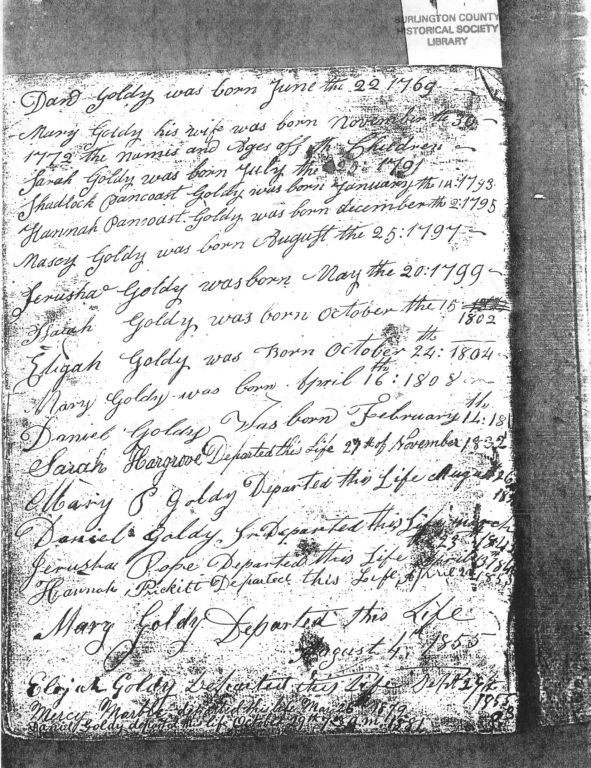 BURLINGTON COUNTY
HISTORICAL SOCIETY
LIBRARY
Goldy was born June the 22 1769
Mary Goldy his wife was born November the 30
1772 the names and Ages off th Children
Sarah Goldy was born July the 1791
Shadlock Pancoast Goldy was born January the 14:1793
Hannah Pancoast Goldy was born december the 2:1795
Masey Goldy was born August the 25:1797
Jerusha Goldy was born May the 20:1799
Goldy was born October the 15
1802
Eligah Goldy was Born October 24th: 1804
Mary Goldy was born April 16th: 1808
Daniel Goldy Was born February 14th:18
Sarah Hargrove Departed this Life 27th of November 1832
Mary P Goldy Departed this Life August 26
Daniel Goldy Sr Departed this Life march
25
Jerusha Pope Departed this Life April 13
Hannah Prickitt Departed this Life April 1855
Mary Goldy Departed this Life
August 4th 1855
Elijah Goldy Departed this Life Sept
Mercy this life May 1879
Daniel Goldy this life October 1881